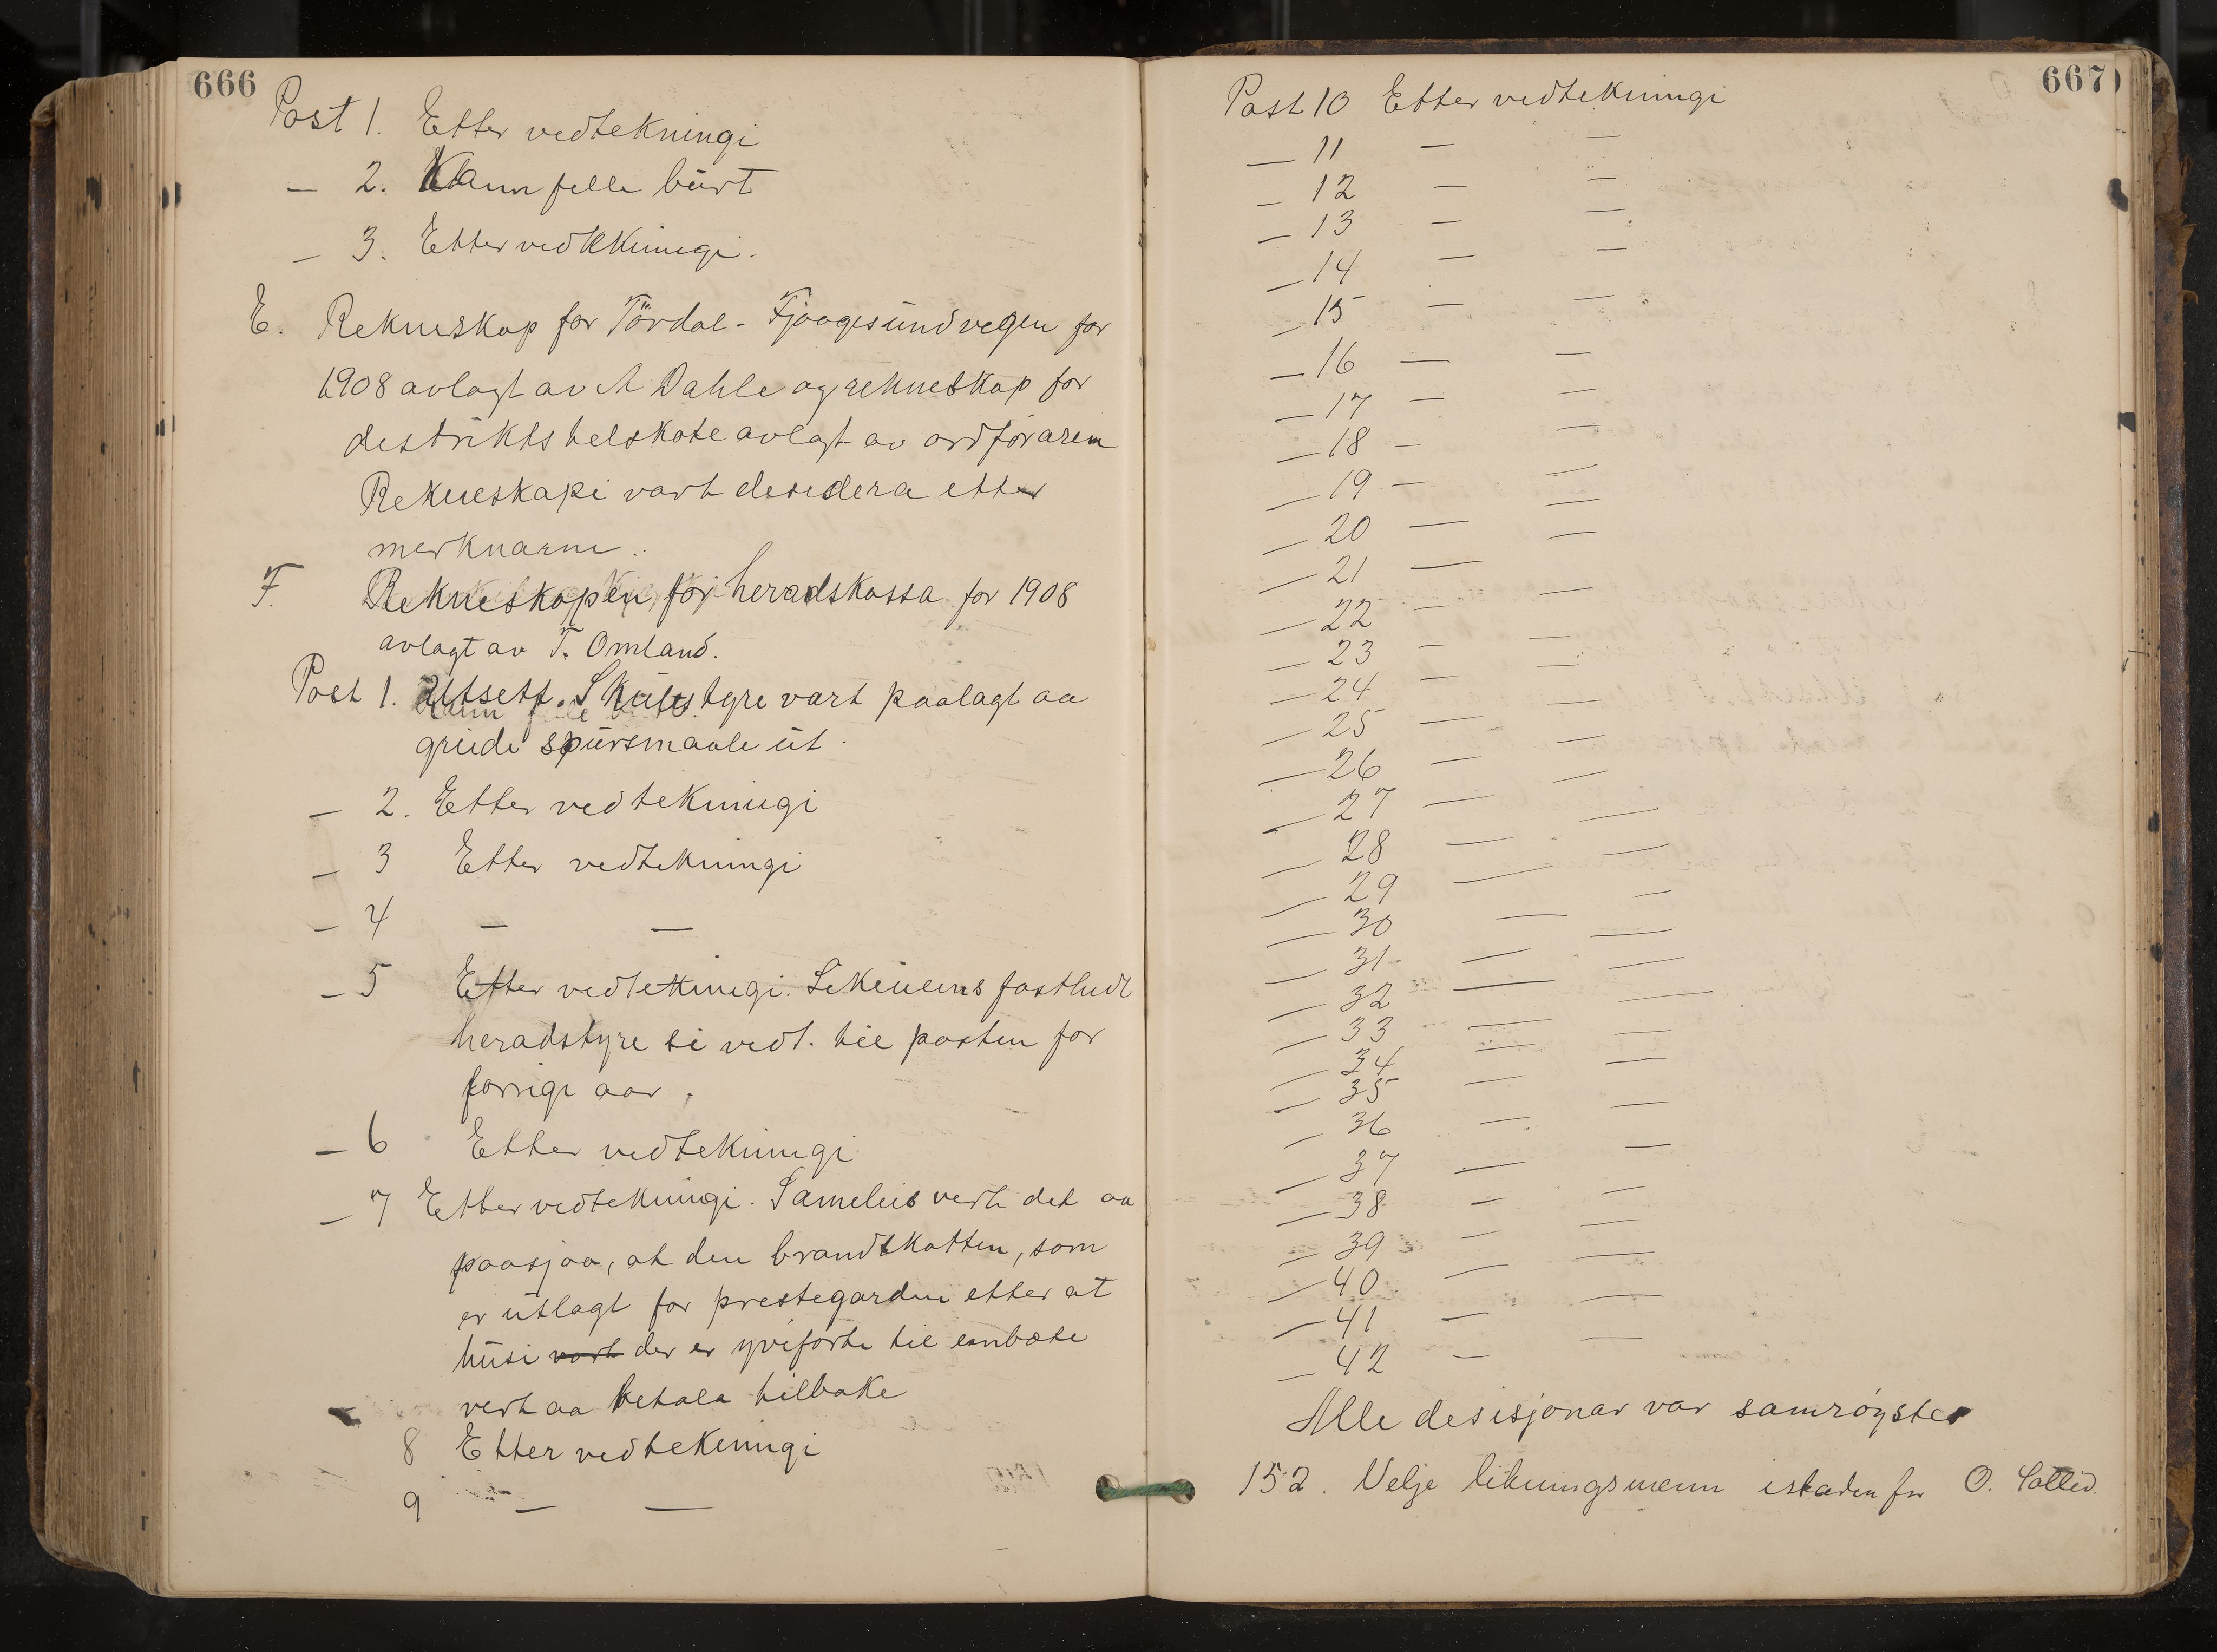 666
Post 1. Etter vedtekningi
— 2. Kann felle burt
— 3. Etter vedtekningi.
E. Rekneskap for Tördal - Fjaagesundvegen for
1908 avlagt av A Dahle og rekneskap for
destrikts telskote avlagt av ordføraren
Rekneskapi vart desidera etter
merknarne.
F. Rekneskapen for heradskassa for 1908
avlagt av T. Omland.
Post 1. Utsett. Skulestyre vart paalagt aa
greide spursmaale ut.
— 2. Etter vedtekningi
— 3 Etter vedtekningi
— 4 — —
— 5 Etter vedtekningi. fastheldt
heradstyre si vedt. til posten for
forrige aar.
— 6 Etter vedtekningi
— 7 Etter vedtekningi. Sameleis vert det aa
paasjaa, at den brandskatten, som
er utlagt for prestegarden etter at
husi vart der er yviførte til embæte
vert aa betala tilbake
— 8 Etter vedtekningi
9 — —
667
Post 10 Etter vedtekningi
— 11 — —
— 12 — —
— 13 — —
— 14 — —
— 15 — —
— 16 — —
— 17 — —
— 18 — —
— 19 — —
— 20 — —
— 21 — —
— 22 — —
— 23 — —
— 24 — —
— 25 — —
— 26 — —
— 27 — —
— 28 — —
— 29 — —
— 30 — —
— 31 — —
— 32 — —
— 33 — —
— 34 — —
— 35 — —
— 36 — —
— 37 — —
— 38 — —
— 39 — —
— 40 — —
— 41 — —
— 42 — —
Alle desisjonar var samrøystes
152. Velje likningsmenn istaden for O.